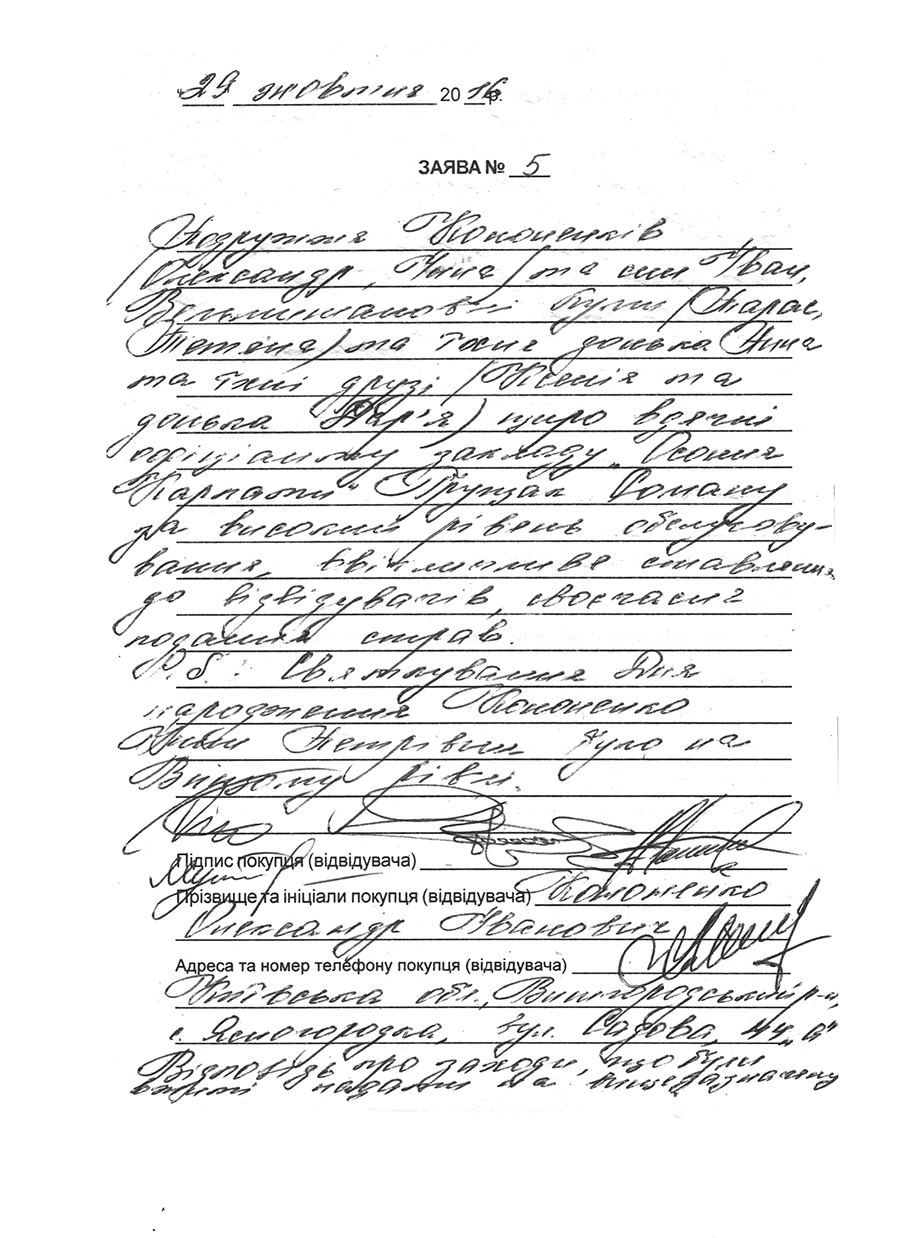 29 жовтня 2016 р.
ЗАЯВА № 5
Подружжя Кононенків
(Олександр, Нина) та син Іван,
були (Тарас,
Тетяна) та їхня донька Анна
та їхні друзі (Ксенія та
донька Дар'я) щиро вдячні
офіціанту закладу „Осоння
Карпати" Грущак Роману
за високий рівень обслугову-
вання, ввічливе ставлення
до відвідувачів, своєчасне
подання страв.
P.S.: Святкування Дня
народження Кононенко
Нини Петрівни було на
Вищому рівні.
Підпис покупця (відвідувача)
Прізвище та ініціали покупця (відвідувача) Кононенко
Олександр Іванович
Адреса та номер телефону покупця (відвідувача)
Київська обл., Вишгородський р-н,
с. Ясногородка, вул. Садова, 44 „а"
Відповідь про заходи, що були
вжиті надати на вищезазначену